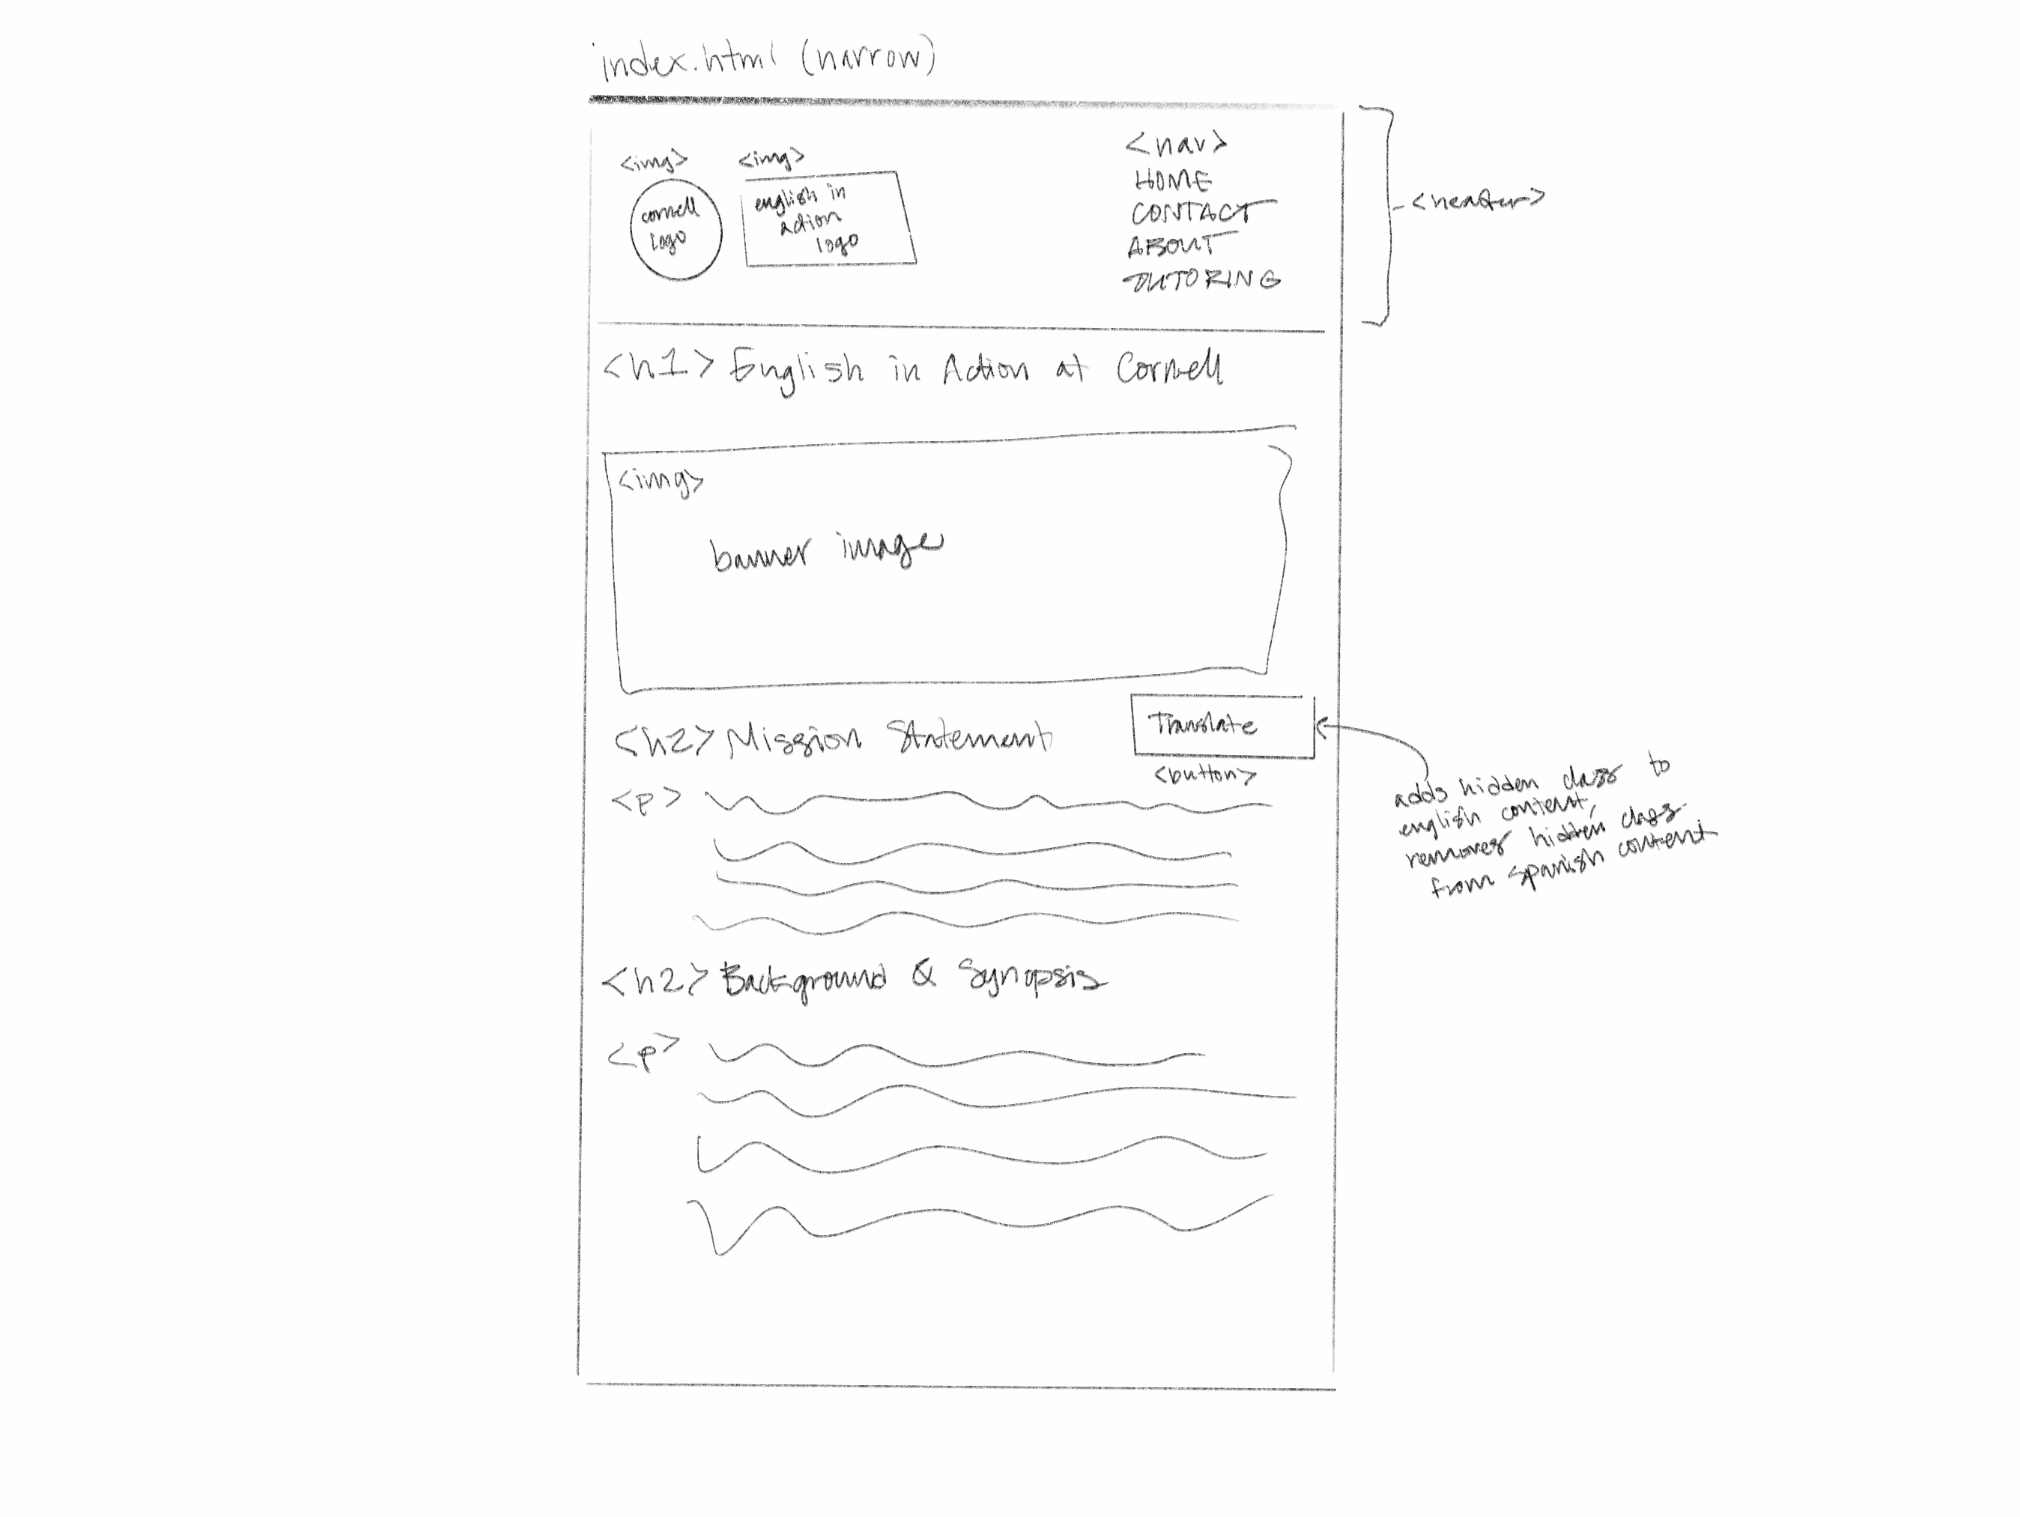 index.html (narrow)
<img>
<img>
cornell
logo
english in
action
logo
<nav>
HOME
CONTACT
ABOUT
TUTORING
<header>
<h1> English in Action at Cornell
<img>
banner image
<h2> Mission Statement
Translate
<button>
adds hidden class to
english content,
removes hidden class
from spanish content
<p>
<h2> Background & Synopsis
<p>